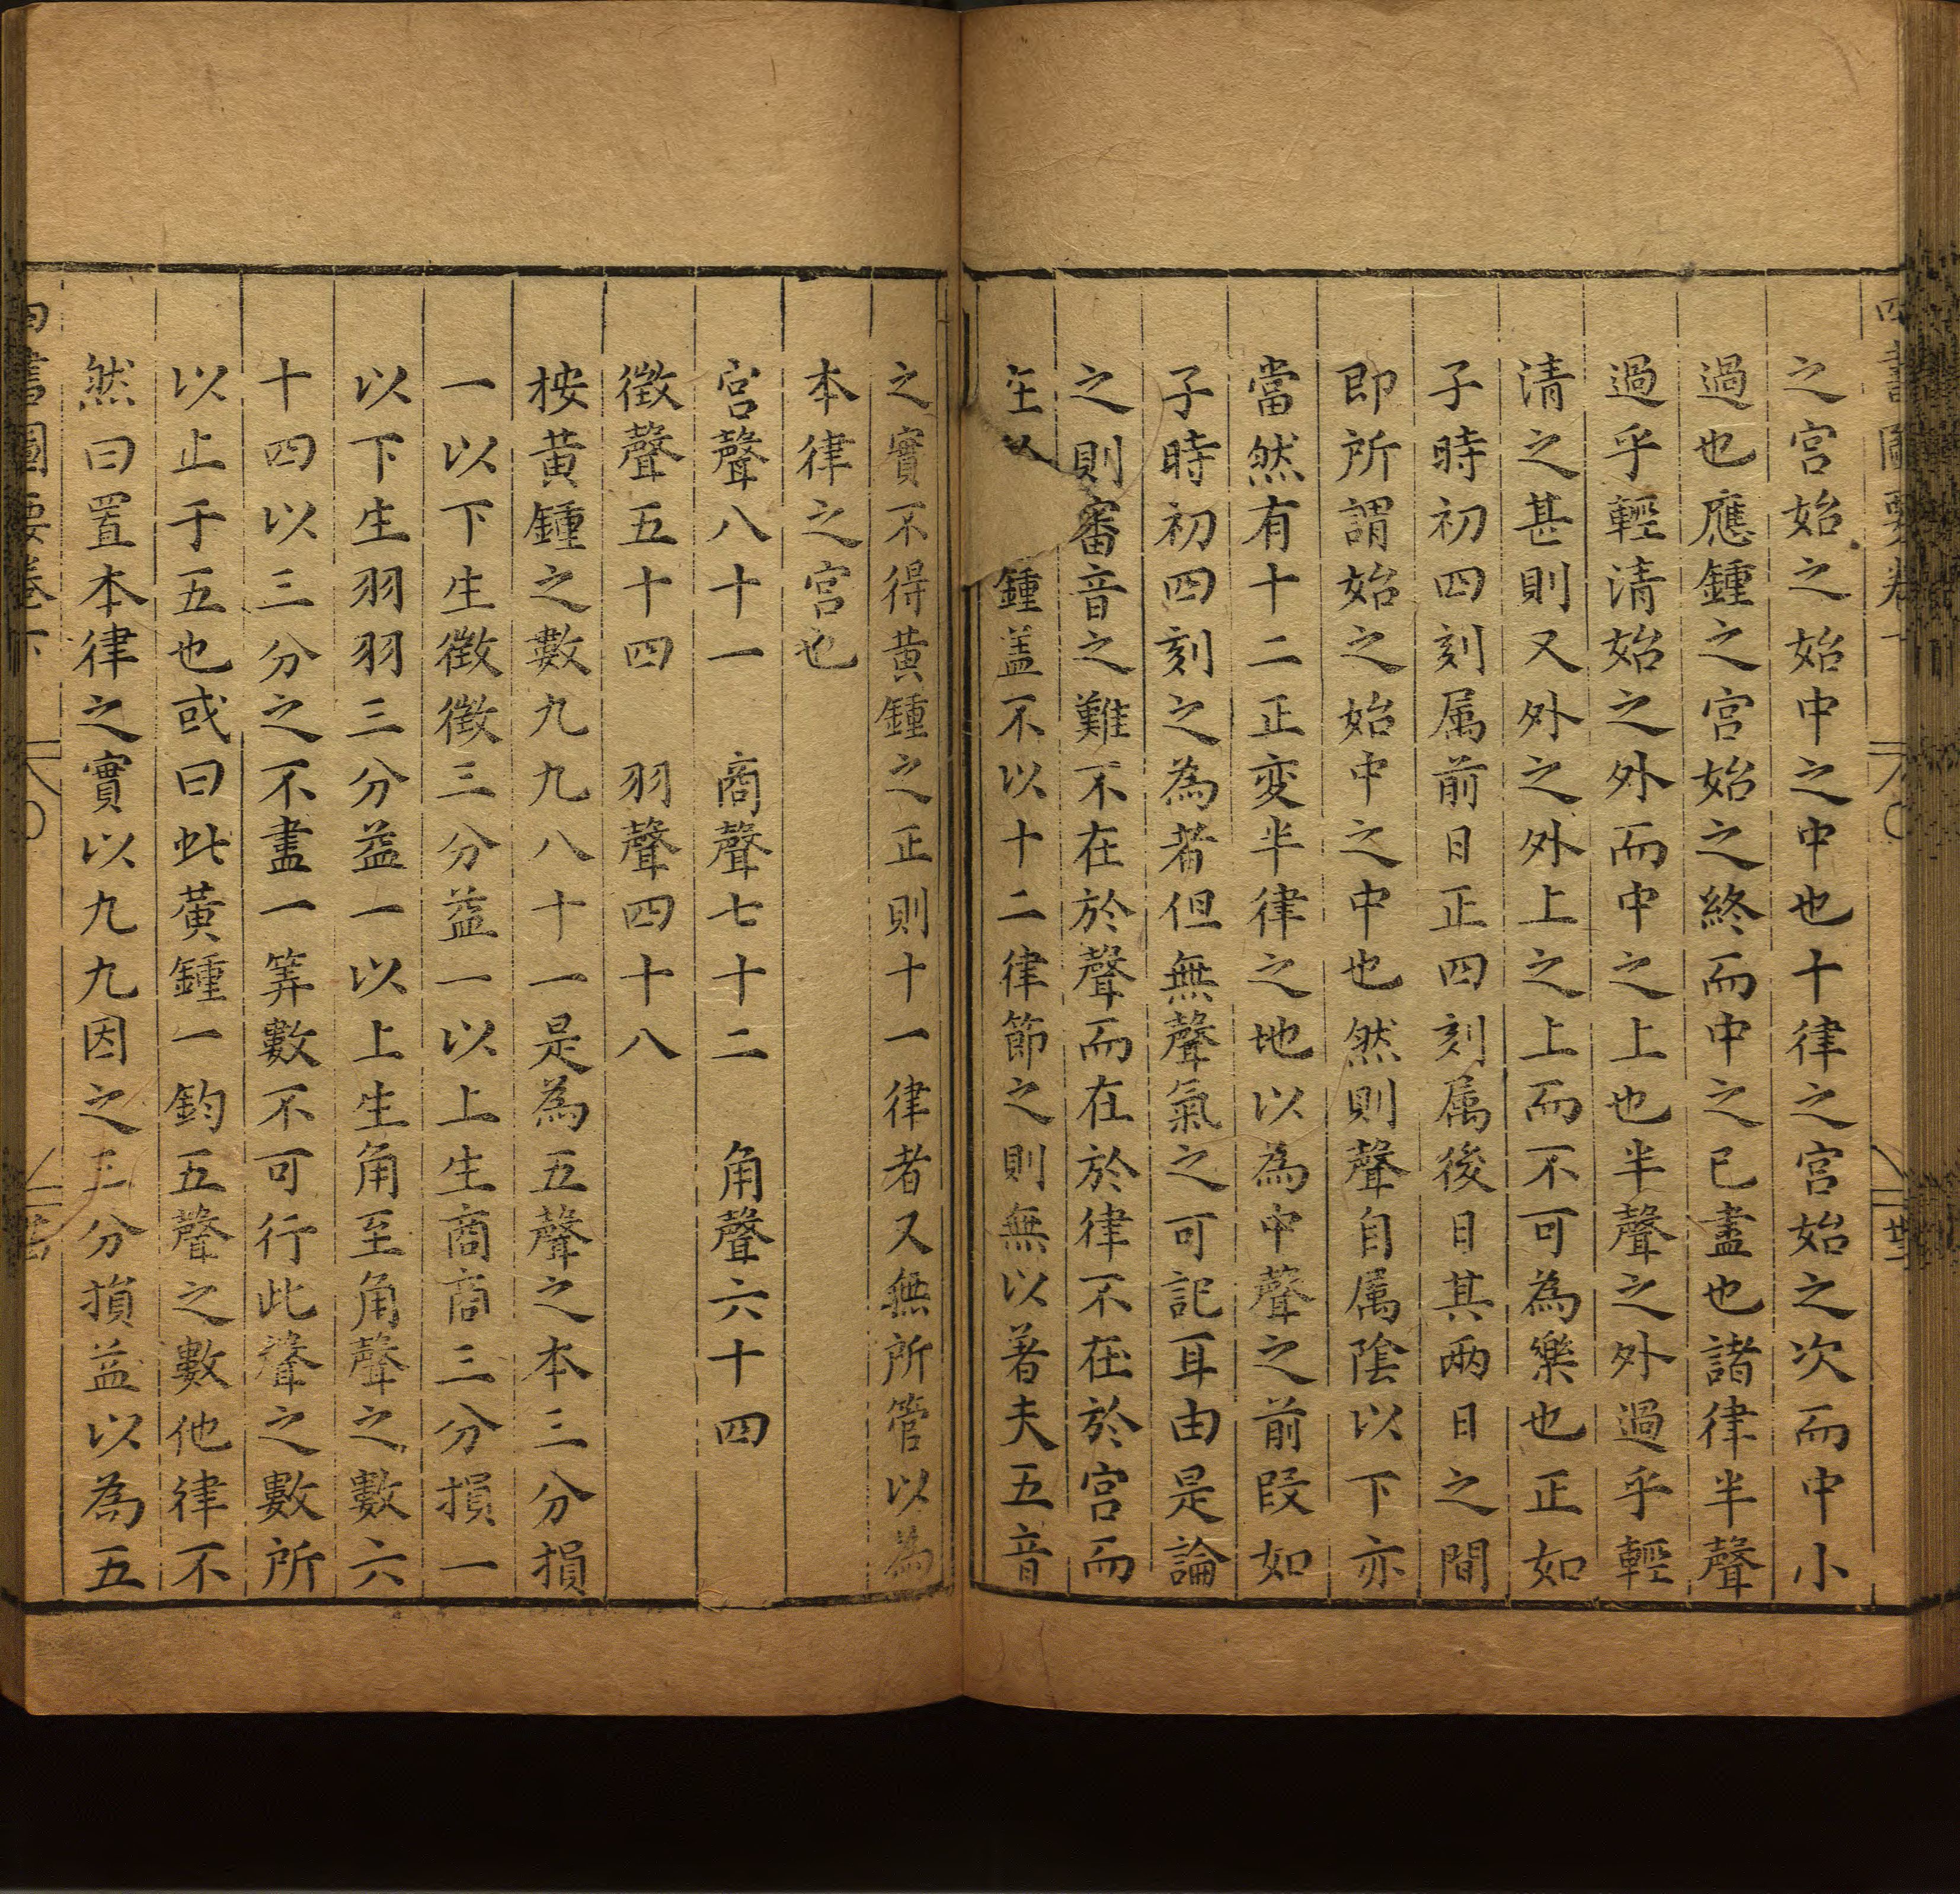 之宮始之始中之中也十律之宮始之次而中小
過也應鍾之宮始之終而中之已盡也諸律半聲
過乎輕清始之外而中之上也半聲之外過乎輕
清之甚則又外之外上之上而不可為樂也正如
子時初四刻属前日正四刻属後日其两日之間
即所謂始之始中之中也然則聲自属陰以下亦
當然有十二正变半律之地以為中聲之前段如
子時初四刻之為者但無聲氣之可記耳由是論
之則審音之難不在於聲而在於律不在於宮而
在以鍾盖不以十二律節之則無以著夫五音
之實不得黄鍾之正則十一律者又無所管以為
本律之宮也
宮聲八十一 商聲七十二 角聲六十四
徵聲五十四 羽聲四十八
按黄鍾之數九九八十一是為五聲之本三分損
一以下生徵徵三分益一以上生商商三分損一
以下生羽羽三分益一以上生角至角聲之數六
十四以三分之不盡一筭數不可行此聲之數所
以止于五也或曰此黄鍾一鈞五聲之數他律不
然曰置本律之實以九九因之三分損益以為五
四書圖要卷下